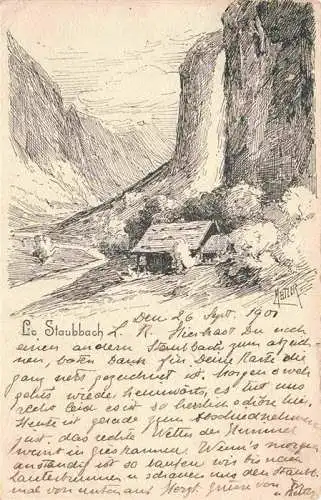 Le Staubbach
Den 26 Sept. 1901
L. K. Hier hast Du noch
einen andern Staubbach zum abzeich-
nen, besten Dank für Deine Karte die
ganz nett gezeichnet ist. Morgen
gehts wieder heimwärts, es tut uns
recht leid es ist so herrlich schön hier.
Heute ist gerade zum Abschiednehmen
just, das rechte Wetter der Himmel
weint in Giesskannen. Wenn's morgen
anständig ist so laufen wir bis nach
Lauterbrunnen u. schauen uns den Staubb.
mal von unten an. Herzl. Grüsse von